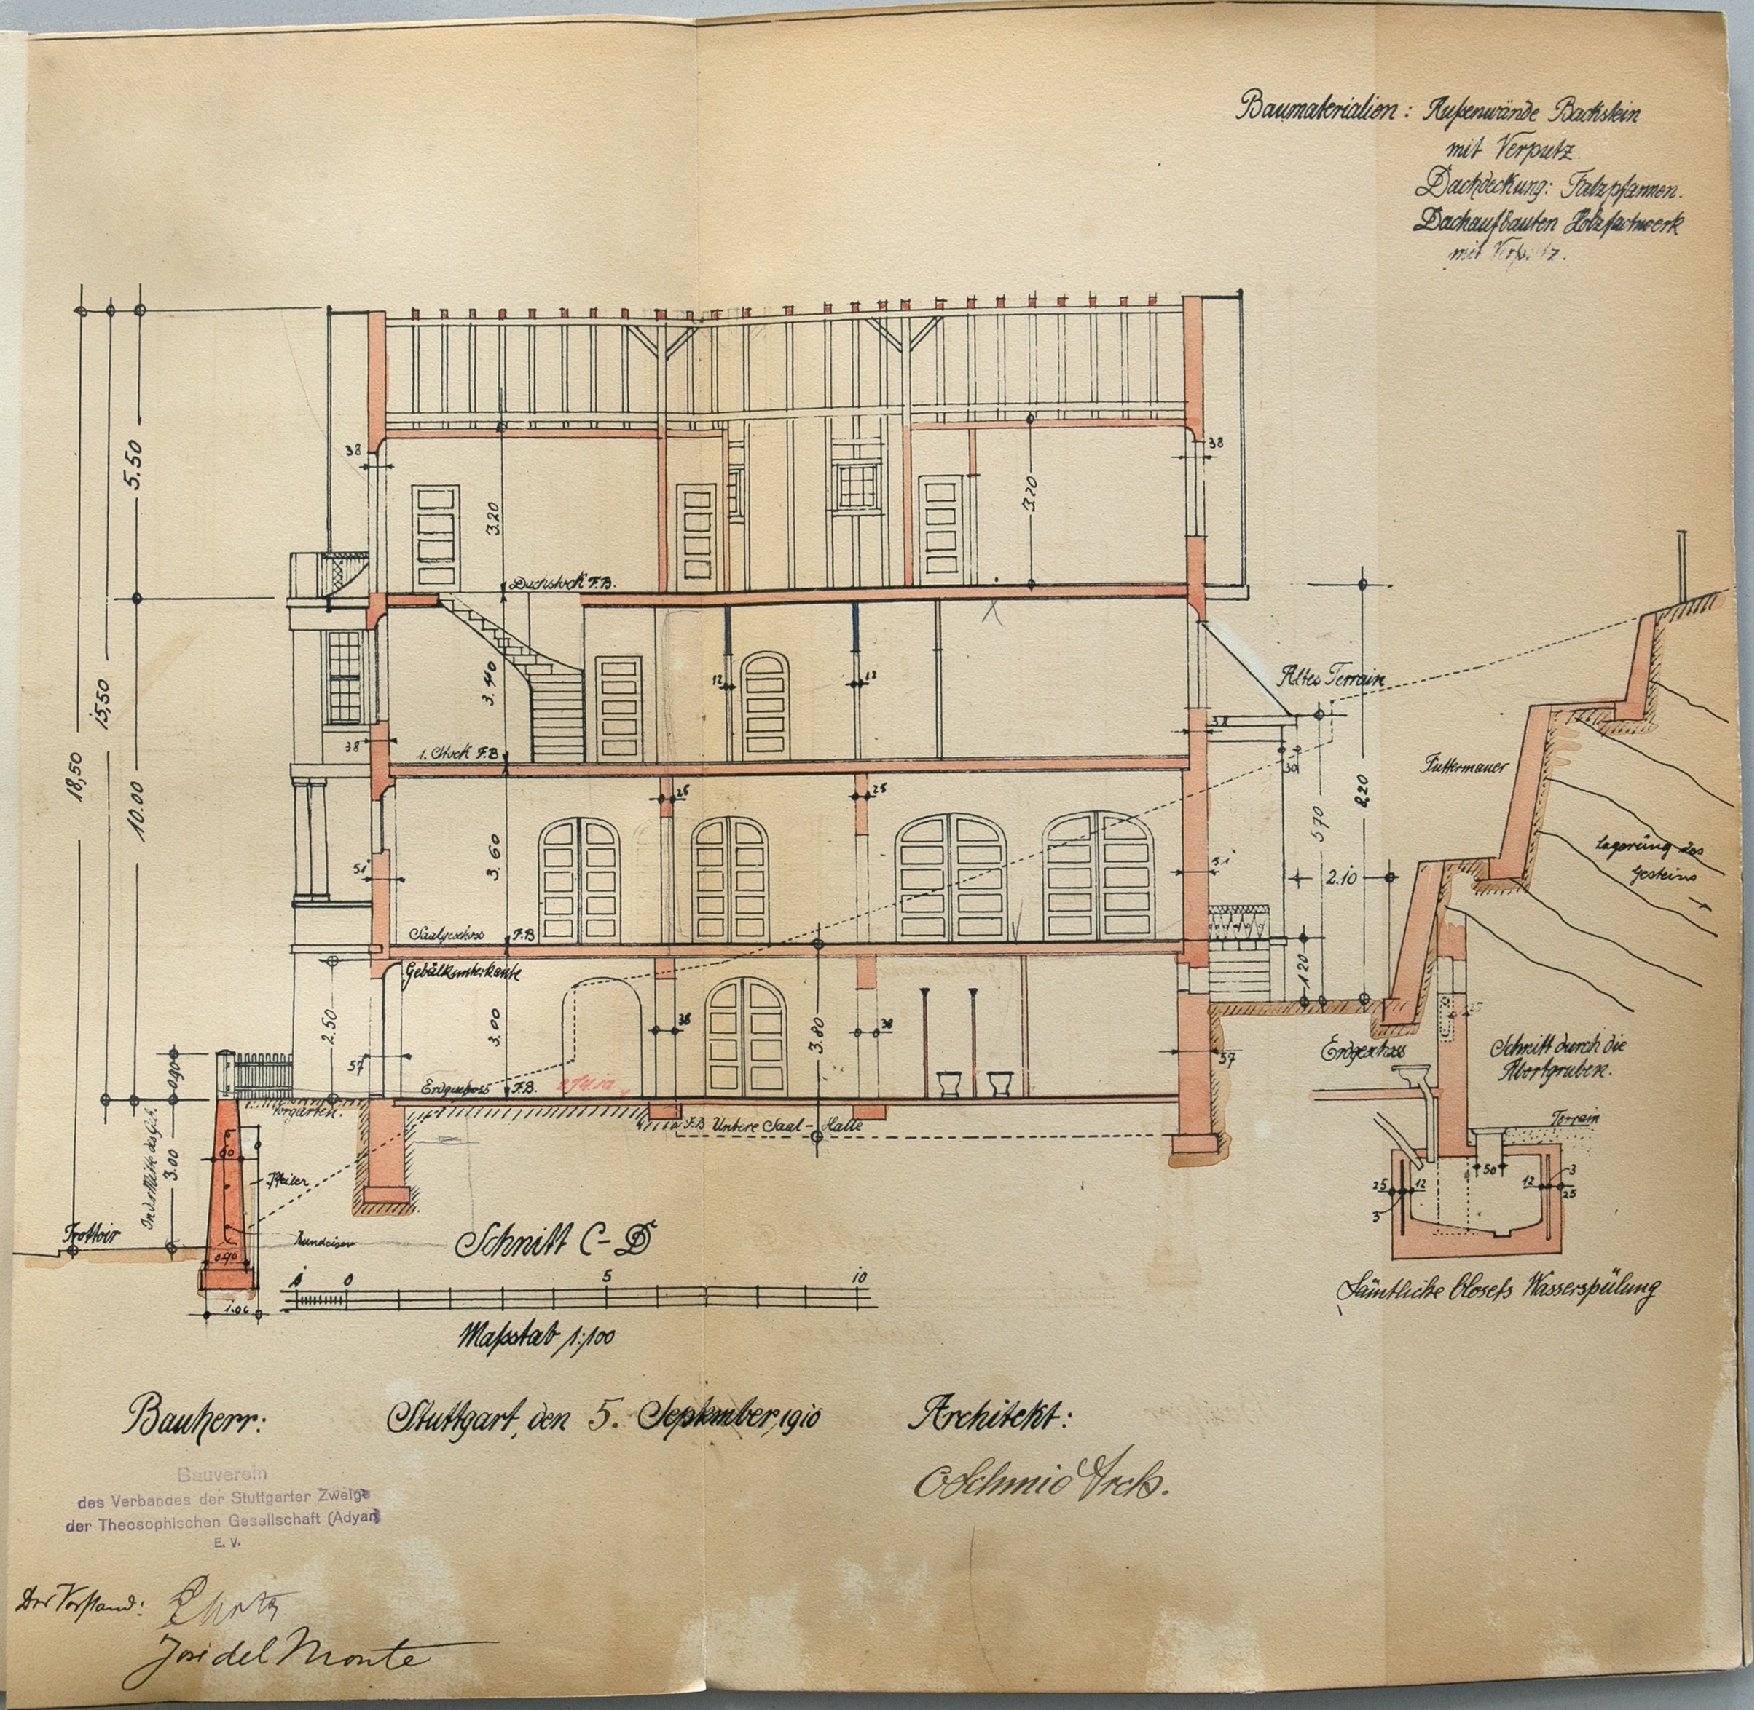 Baumaterialien: Außenwände Backstein
mit Verputz
Dachdeckung: Falzpfannen.
Dachaufbauten Holzfachwerk
mit Verputz.
38
38
5.50
3.20
3.20
Dachstock F.B.
15,50
18,50
10.00
3.40
12
12
Altes Terrain
38
38
1. Stock F.B.
30
Futtermauer
25
25
3.60
51
51
5.70
8,20
2.10
Lagerung des
Gesteins
Saalgeschoss F.B
Gebälkunterkante
1.20
2.50
3.00
38
3.80
38
57
57
Erdgeschoss
Schnitt durch die
Abortgruben.
0.90
Erdgeschoss F.B.
Vorgarten.
F.B Untere Saal-Halle
Terrain
3.00
60
Pfeiler
50
25
12
3
12
3
25
Trottoir
Rundeisen
0.90
1.00
Schnitt C-D
1
0
5
10
Maßstab 1:100
Sämtliche Closets Wasserspülung
Bauherr:
Stuttgart, den 5. September, 1910
Architekt:
C Schmid Arch.
Bauverein
des Verbandes der Stuttgarter Zweige
der Theosophischen Gesellschaft (Adyar)
E. V.
Der Vorstand:
José del Monte